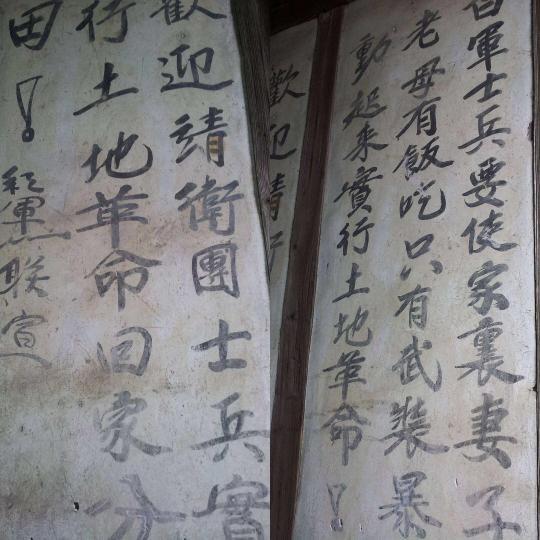 白軍士兵要使家裏妻子
老母有飯吃只有武裝暴
動起来實行土地革命！
歡迎靖
歡迎靖衛團士兵實
行土地革命回家分
田！
紅軍联宣